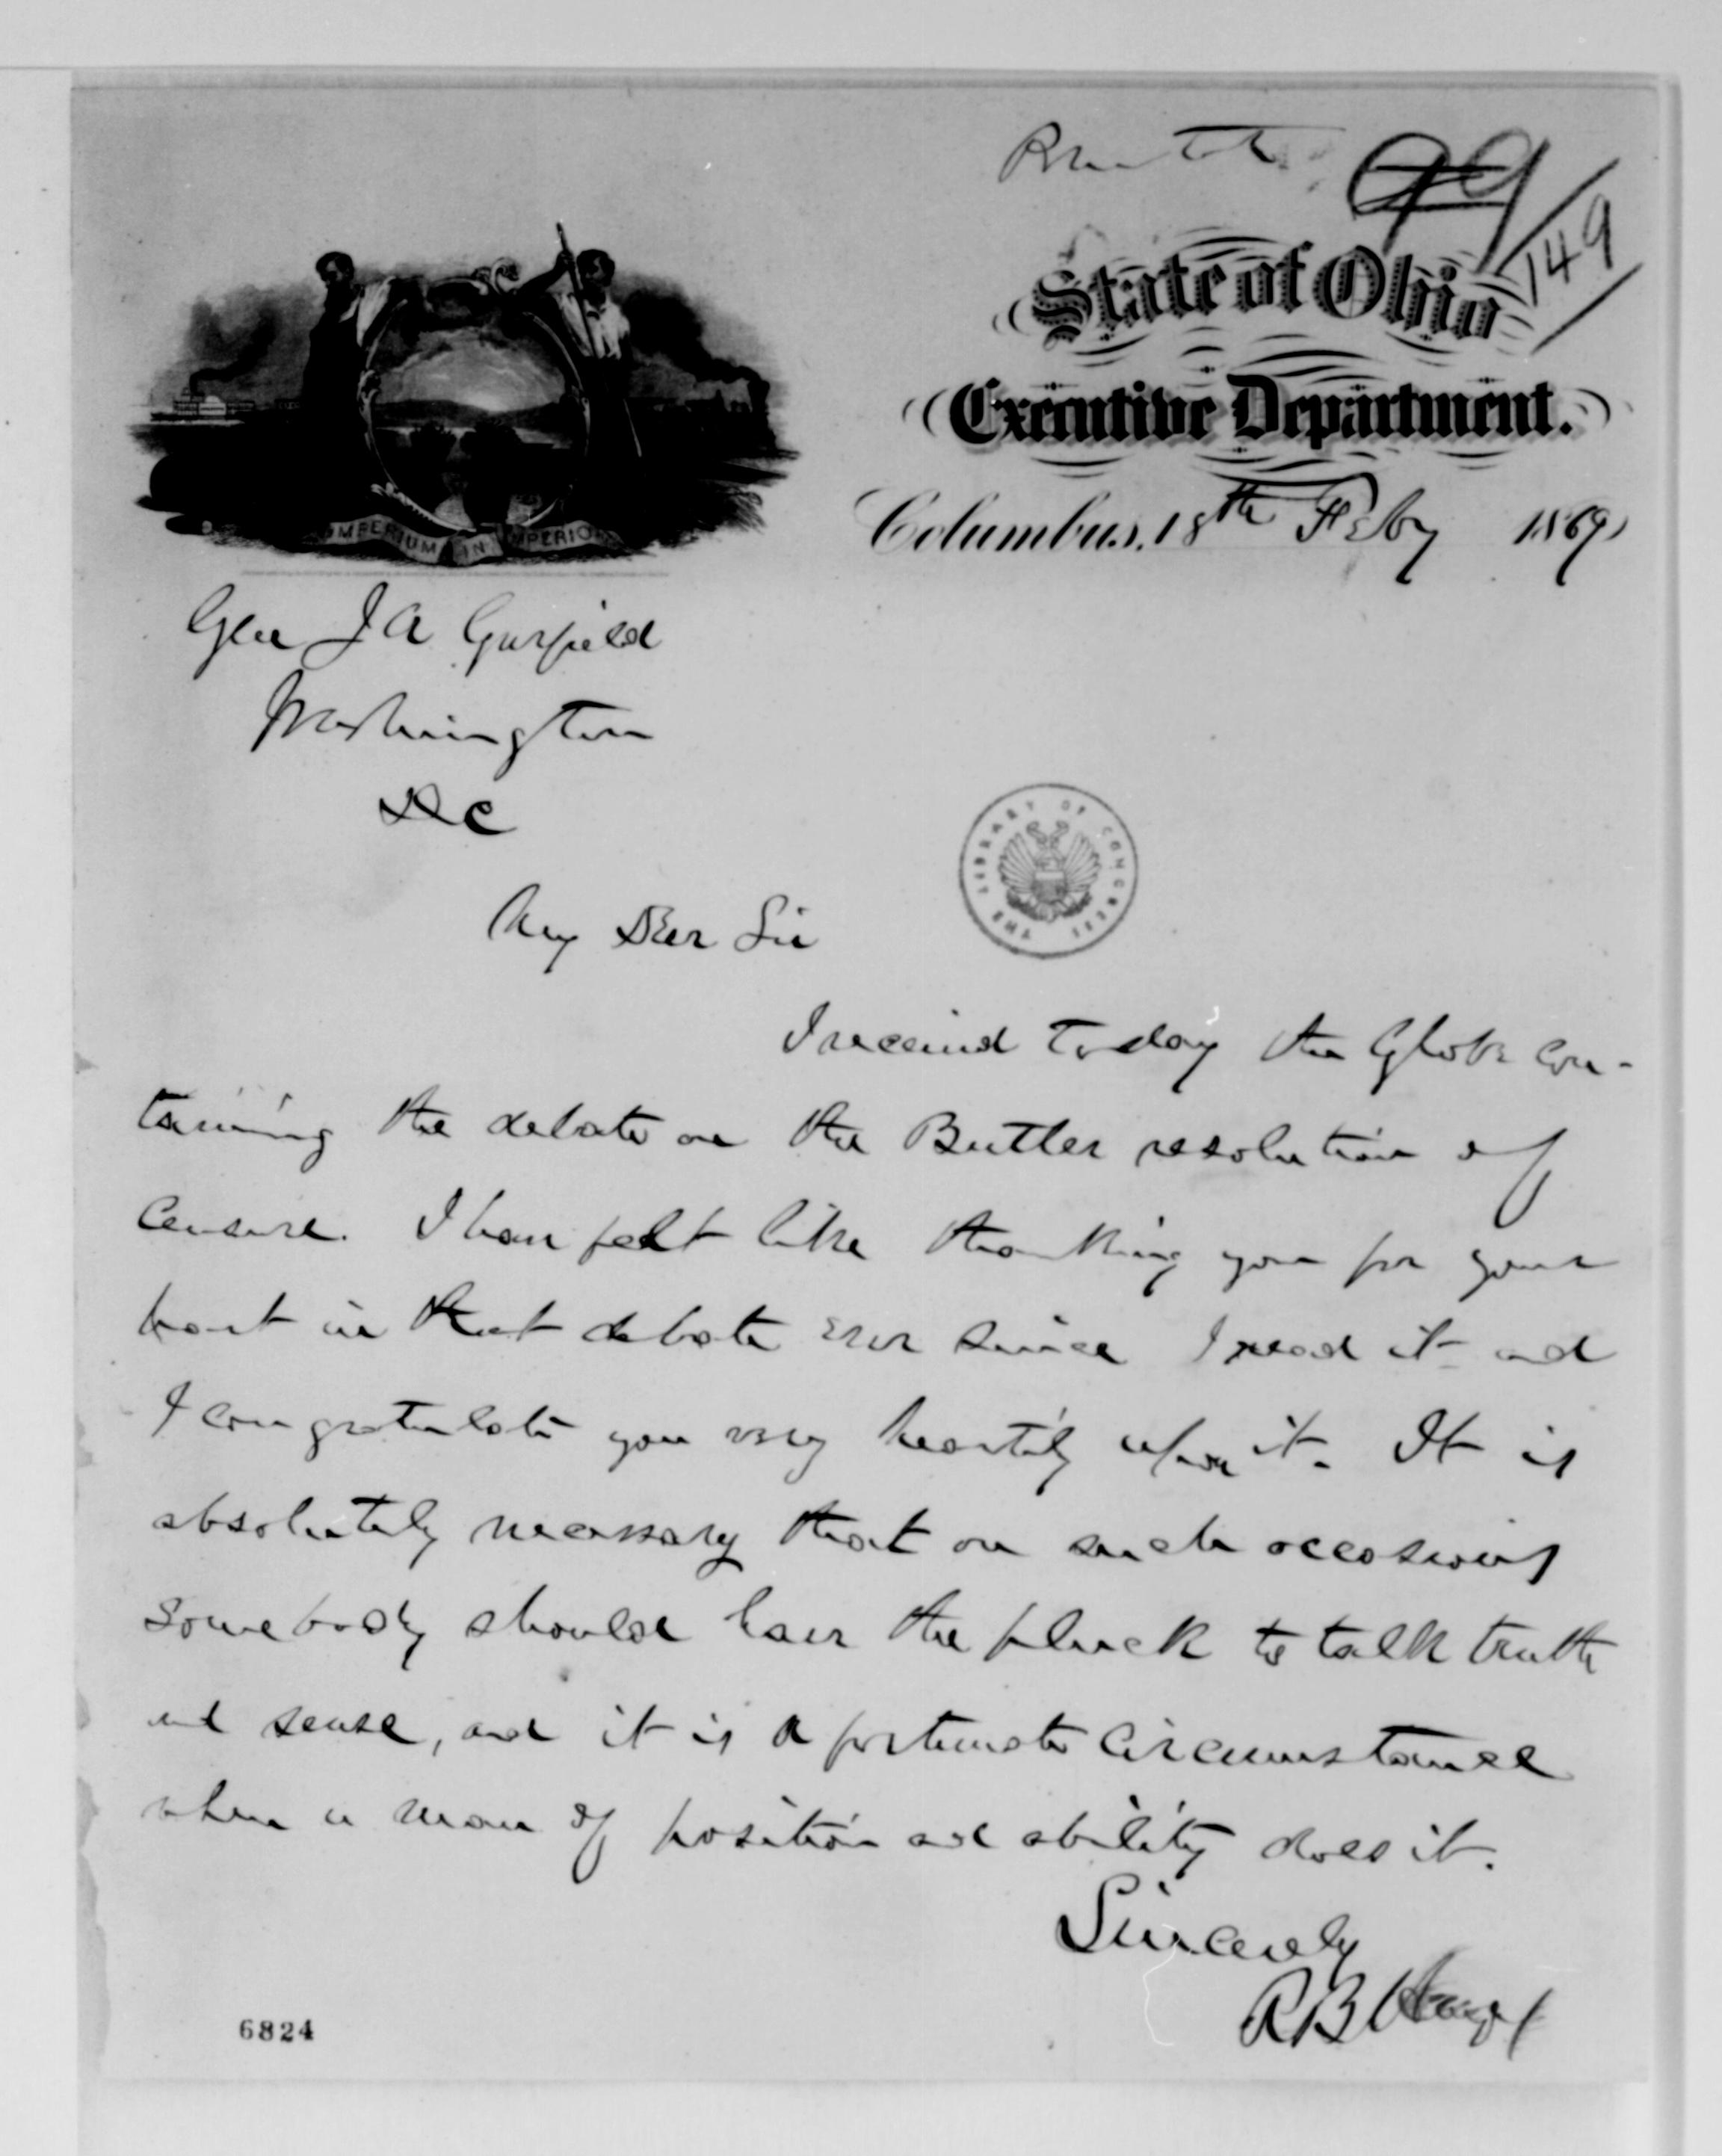 99
149
State of Ohio
Executive Department.
Columbus, 18th Feby 1869
IMPERIUM IN IMPERIO
Gen J A Garfield
Washington
D C
THE LIBRARY OF CONGRESS
My Dear Sir
I received today the Globe con-
taining the debate on the Butler resolution of
censure. I have felt like thanking you for your
part in that debate ever since I read it and
I congratulate you very heartily upon it. It is
absolutely necessary that on such occasions
somebody should have the pluck to talk truth
and sense, and it is a fortunate circumstance
when a man of position and ability does it.
Sincerely
R B Hayes
6824